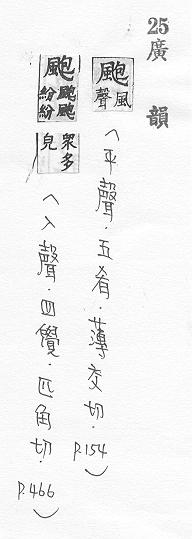 25廣韻
颮風聲〈平聲.五肴.薄交切.p.154〉
颮颮颮紛紛衆多皃〈入聲.四覺.匹角切.p.466〉